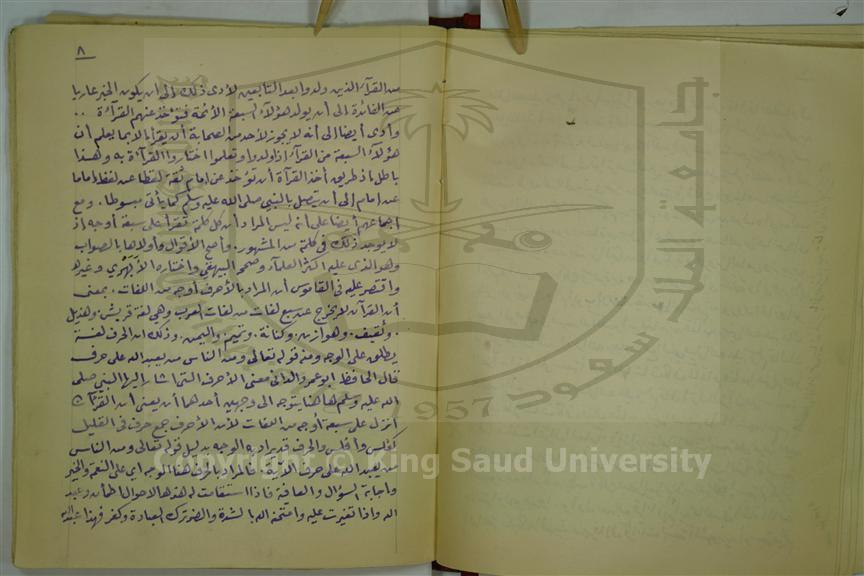 ٨
من القرآء الذين ولدوا بعد التابعين لأدى ذلك إلى أن يكون الخبر عاريا
عن الفائدة إلى أن يولد هؤلاء السبعة الأئمة فتؤخذ عنهم القرآءة ..
وأدى أيضا إلى أنه لا يجوز لأحد من الصحابة أن يقرأ إلا بما يعلم أن
هؤلاء السبعة من القرآء إذا ولدوا وتعلموا اختاروا القرآءة به وهذا
باطل اذ طريق أخذ القرآءة أن تؤخذ عن إمام ثقة لفظا عن لفظ إماما
عن إمام إلى أن يتصل بالنبي صلى الله عليه وسلم كما يأتى مبسوطا . ومع
اجماعهم أيضا على أنه ليس المراد أن كل كلمة تقرأ على سبعة أوجه اذ
لا يوجد ذلك فى كلمة من المشهور . وأصح الأقوال وأولاها بالصواب
وهو الذى عليه اكثر العلمآء وصححه البيهقى واختاره الأبهرى وغيره
واقتصر عليه فى القاموس أن المراد بالأحرف أوجه من اللغات . بمعنى
أن القرآن لا يخرج عن سبع لغات من لغات العرب وهى لغة قريش . وهذيل
. وثقيف . وهوازن . وكنانة . وتميم . واليمن . وذلك ان الحرف لغة
يطلق على الوجه ومنه قوله تعالى ومن الناس من يعبد الله على حرف
قال الحافظ ابو عمرو الدانى معنى الأحرف التى اشار إليها النبي صلى
الله عليه وسلم هاهنا يتوجه الى وجهين أحدهما أن يعنى أن القرآن
أنزل على سبعة أوجه من اللغات لأن الأحرف جمع حرف فى القليل
كفلس وأفلس والحرف قد يراد به الوجه بدليل قوله تعالى ومن الناس
من يعبد الله على حرف الآية فالمراد بالحرف هنا الوجه اي على النعمة والخير
واجابة السؤال والعافية فاذا استقامت له هذه الاحوال اطمأن وعبد
الله واذا تغيرت عليه وامتحنه الله بالشدة والضر ترك العبادة وكفر فهذا عبد الله
جامعة الملك سعود
1957
Copyright © King Saud University